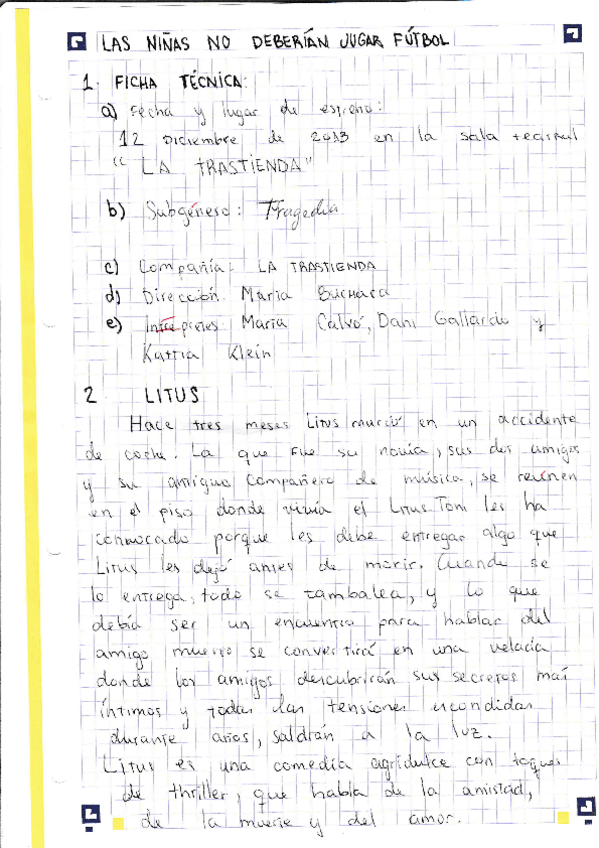 LAS NIÑAS NO DEBERÍAN JUGAR FÚTBOL
1. FICHA TÉCNICA:
a) Fecha y lugar de estreno:
12 Diciembre de 2013 en la sala teatral
"LA TRASTIENDA"
b) Subgénero: Tragedia
c) Compañía: LA TRASTIENDA
d) Dirección: Maria Buchara
e) Intérpretes Maria Calvó, Dani Gallardo y
Kattia Klein
2 LITUS
Hace tres meses Litus murió en un accidente
de coche. La que fue su novia, sus dos amigos
y su antiguo compañero de música, se reúnen
en el piso donde vivía el Litus. Toni les ha
convocado porque les debe entregar algo que
Litus les dejó antes de morir. Cuando se
lo entrega, todo se tambalea, y lo que
debía ser un encuentro para hablar del
amigo muerto se convertirá en una velada
donde los amigos descubrirán sus secretos más
íntimos y todas las tensiones escondidas
durante años, saldrán a la luz.
Litus es una comedia agridulce con toques
de thriller, que habla de la amistad,
de la muerte y del amor.